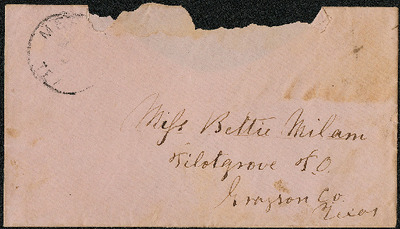 Miss Bettie Milam
Pilotgrove P.O.
Grayson Co.
Texas